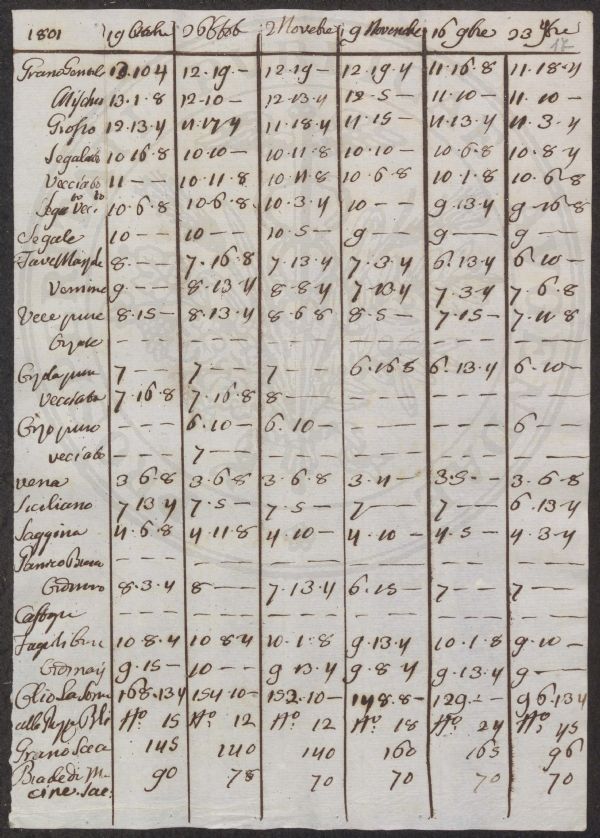 1801 19 Ottobre 26 Ottob 2 Novebre 9 Novembre 16 9bre 23 9bre
17
Grano Gentil 13.10.4 12.19.- 12.19- 12.19.4 11.16.8 11.18.4
Mischio 13.1.8 12.10- 12.13.4 12.5- 11.10- 11.10-
Grosso 12.13.4 11.17.4 11.18.4 11.15- 11.13.4 11.3.4
Segalato 10.16.8 10.10- 10.11.8 10.10- 10.6.8 10.8.4
Vecciato 11-- 10.11.8 10.11.8 10.6.8 10.1.8 10.6.8
Sega.to Vec.to 10.6.8 10.6.8 10.3.4 10-- 9.13.4 9.16.8
Segale 10-- 10-- 10.5- 9-- 9-- 9--
Fave 8.-- 7.16.8 7.13.4 7.3.4 6.13.4 6.10-
Vernine 9-- 8.13.4 8.8.4 7.13.4 7.3.4 7.6.8
Vecce pure 8.15- 8.13.4 8.6.8 8.5- 7.15- 7.11.8
--- --- --- --- --- ---
pura 7-- 7-- 7-- 6.16.8 6.13.4 6.10-
vecciata 7.16.8 7.16.8 8-- --- --- ---
Orzo puro --- 6.10- 6.10- --- --- 6--
veciato --- 7-- --- --- --- ---
vena 3.6.8 3.6.8 3.6.8 3.11- 3.5- 3.6.8
Siciliano 7.13.4 7.5- 7.5- 7-- 7-- 6.13.4
Saggina 4.6.8 4.11.8 4.10- 4.10- 4.5- 4.3.4
Panico --- --- --- --- --- ---
8.3.4 8-- 7.13.4 6.15- 7-- 7--
--- --- --- --- --- ---
Fagioli 10.8.4 10.8.4 10.1.8 9.13.4 10.1.8 9.10-
Ordinarj 9.15- 10-- 9.13.4 9.8.4 9.13.4 9--
Olio La Soma 168.13.4 154.10- 152.10- 148.8- 129.- 96.13.4
No 15 No 12 No 12 No 18 No 24 No 45
Grano Sacca 145 140 140 160 165 96
Biade di M-
cine. Sac: 90 78 70 70 70 70